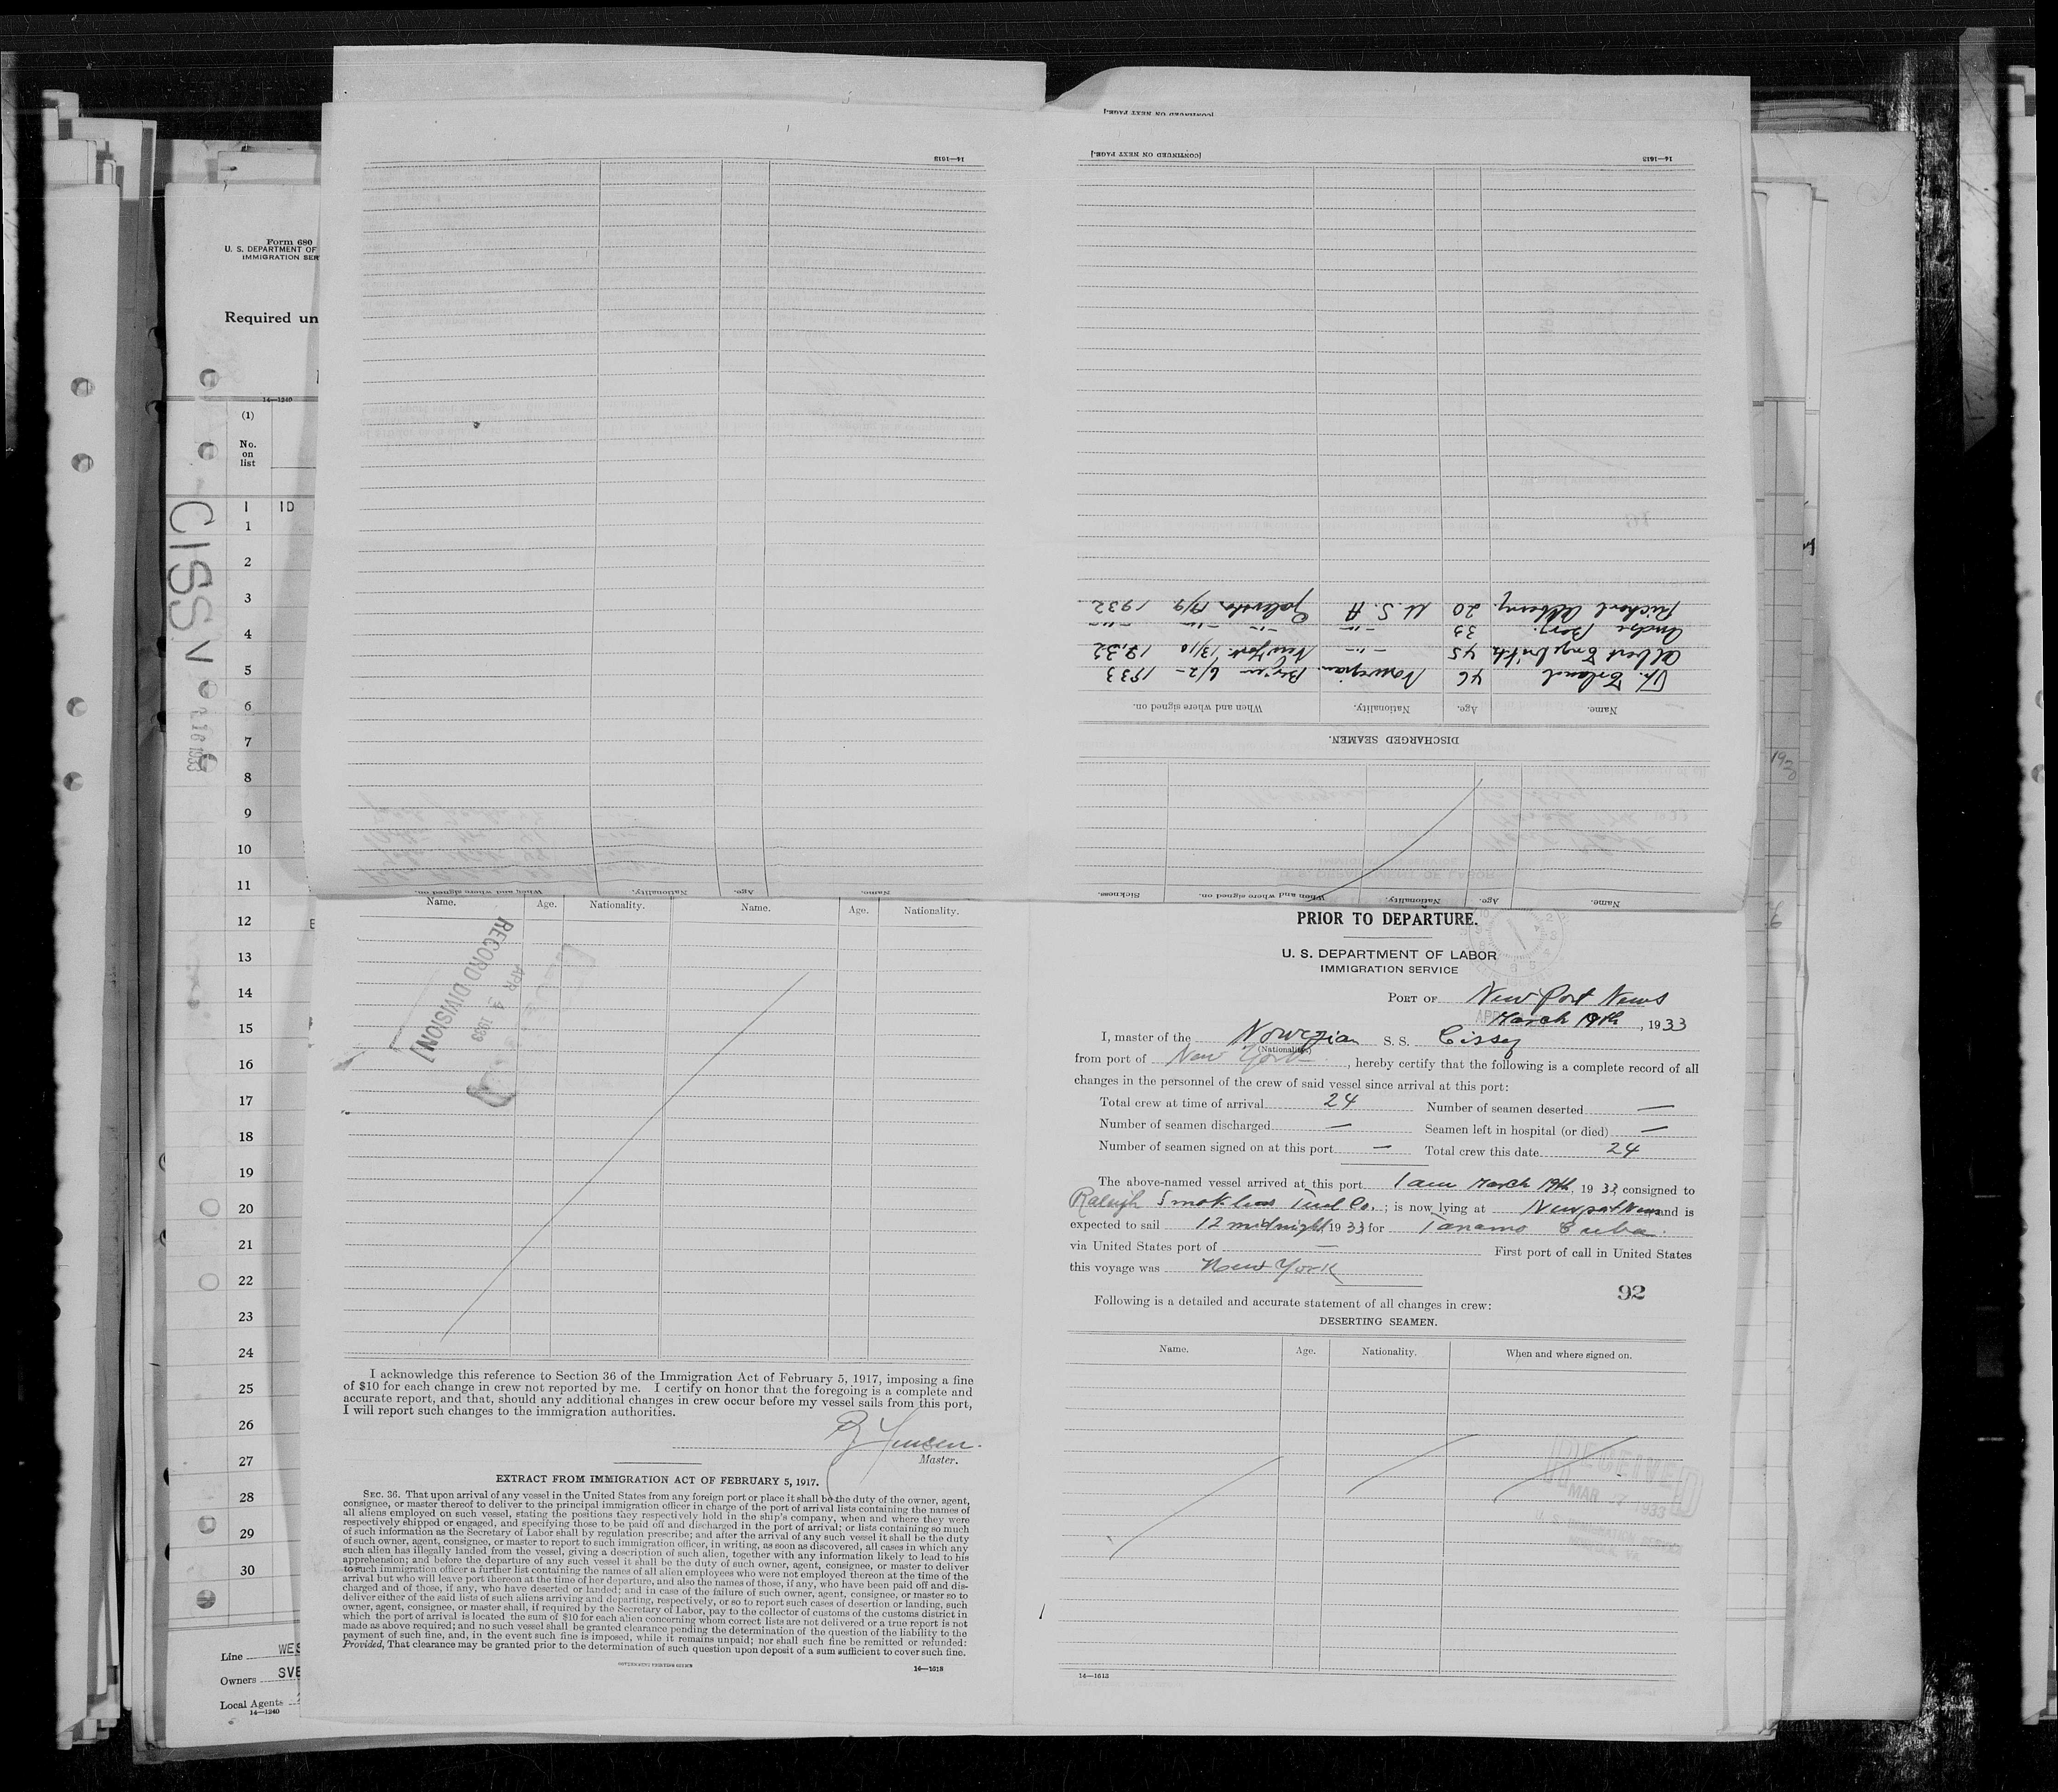 Form 680
U. S. DEPARTMENT OF
IMMIGRATION SER
Required un
14—1240
(1)
No.
on
list
I ID
1
2
3
4
5
6
7
8
9
10
11
12
13
14
15
16
17
18
19
20
21
22
23
24
25
26
27
28
29
30
CISSY
Line WES
Owners SVE
Local Agents
14—1240
14—1613
When and where signed on. Nationality. Age. Name.
[CONTINUED ON NEXT PAGE.]
[CONTINUED ON NEXT PAGE.]
14—1613
Sickness. When and where signed on. Nationality. Age. Name.
DISCHARGED SEAMEN.
Name. Age. Nationality. When and where signed on.
Th. Erland 46 Norwegian Bergen 6/2 - 1933
Albert 45 -"- New York 13/10 1932
Andre Berj. 33 -"- -"- -"- -"-
Richard 20 U. S. A 19/9 1932
Name. Age. Nationality. Name. Age. Nationality.
RECORD DIVISION
APR 4 1933
I acknowledge this reference to Section 36 of the Immigration Act of February 5, 1917, imposing a fine
of $10 for each change in crew not reported by me. I certify on honor that the foregoing is a complete and
accurate report, and that, should any additional changes in crew occur before my vessel sails from this port,
I will report such changes to the immigration authorities.
Jensen.
Master.
EXTRACT FROM IMMIGRATION ACT OF FEBRUARY 5, 1917.
SEC. 36. That upon arrival of any vessel in the United States from any foreign port or place it shall be the duty of the owner, agent,
consignee, or master thereof to deliver to the principal immigration officer in charge of the port of arrival lists containing the names of
all aliens employed on such vessel, stating the positions they respectively hold in the ship's company, when and where they were
respectively shipped or engaged, and specifying those to be paid off and discharged in the port of arrival; or lists containing so much
of such information as the Secretary of Labor shall by regulation prescribe; and after the arrival of any such vessel it shall be the duty
of such owner, agent, consignee, or master to report to such immigration officer, in writing, as soon as discovered, all cases in which any
such alien has illegally landed from the vessel, giving a description of such alien, together with any information likely to lead to his
apprehension; and before the departure of any such vessel it shall be the duty of such owner, agent, consignee, or master to deliver
to such immigration officer a further list containing the names of all alien employees who were not employed thereon at the time of the
arrival but who will leave port thereon at the time of her departure, and also the names of those, if any, who have been paid off and dis-
charged and of those, if any, who have deserted or landed; and in case of the failure of such owner, agent, consignee, or master so to
deliver either of the said lists of such aliens arriving and departing, respectively, or so to report such cases of desertion or landing, such
owner, agent, consignee, or master shall, if required by the Secretary of Labor, pay to the collector of customs of the customs district in
which the port of arrival is located the sum of $10 for each alien concerning whom correct lists are not delivered or a true report is not
made as above required; and no such vessel shall be granted clearance pending the determination of the question of the liability to the
payment of such fine, and, in the event such fine is imposed, while it remains unpaid; nor shall such fine be remitted or refunded:
Provided, That clearance may be granted prior to the determination of such question upon deposit of a sum sufficient to cover such fine.
GOVERNMENT PRINTING OFFICE
14—1613
PRIOR TO DEPARTURE.
U. S. DEPARTMENT OF LABOR
IMMIGRATION SERVICE
PORT OF New Port News
March 19th, 1933
I, master of the Norwegian S. S. Cissy
(Nationality)
from port of New York, hereby certify that the following is a complete record of all
changes in the personnel of the crew of said vessel since arrival at this port:
Total crew at time of arrival 24 Number of seamen deserted —
Number of seamen discharged — Seamen left in hospital (or died) —
Number of seamen signed on at this port — Total crew this date 24
The above-named vessel arrived at this port 1 am March 19th, 1933, consigned to
Raleigh Smokless Fuel Co.; is now lying at Newport News and is
expected to sail 12 midnight 1933 for Tanamo Cuba
via United States port of — First port of call in United States
this voyage was New York
92
Following is a detailed and accurate statement of all changes in crew:
DESERTING SEAMEN.
Name. Age. Nationality. When and where signed on.
RECEIVED
MAR 1933
14—1613